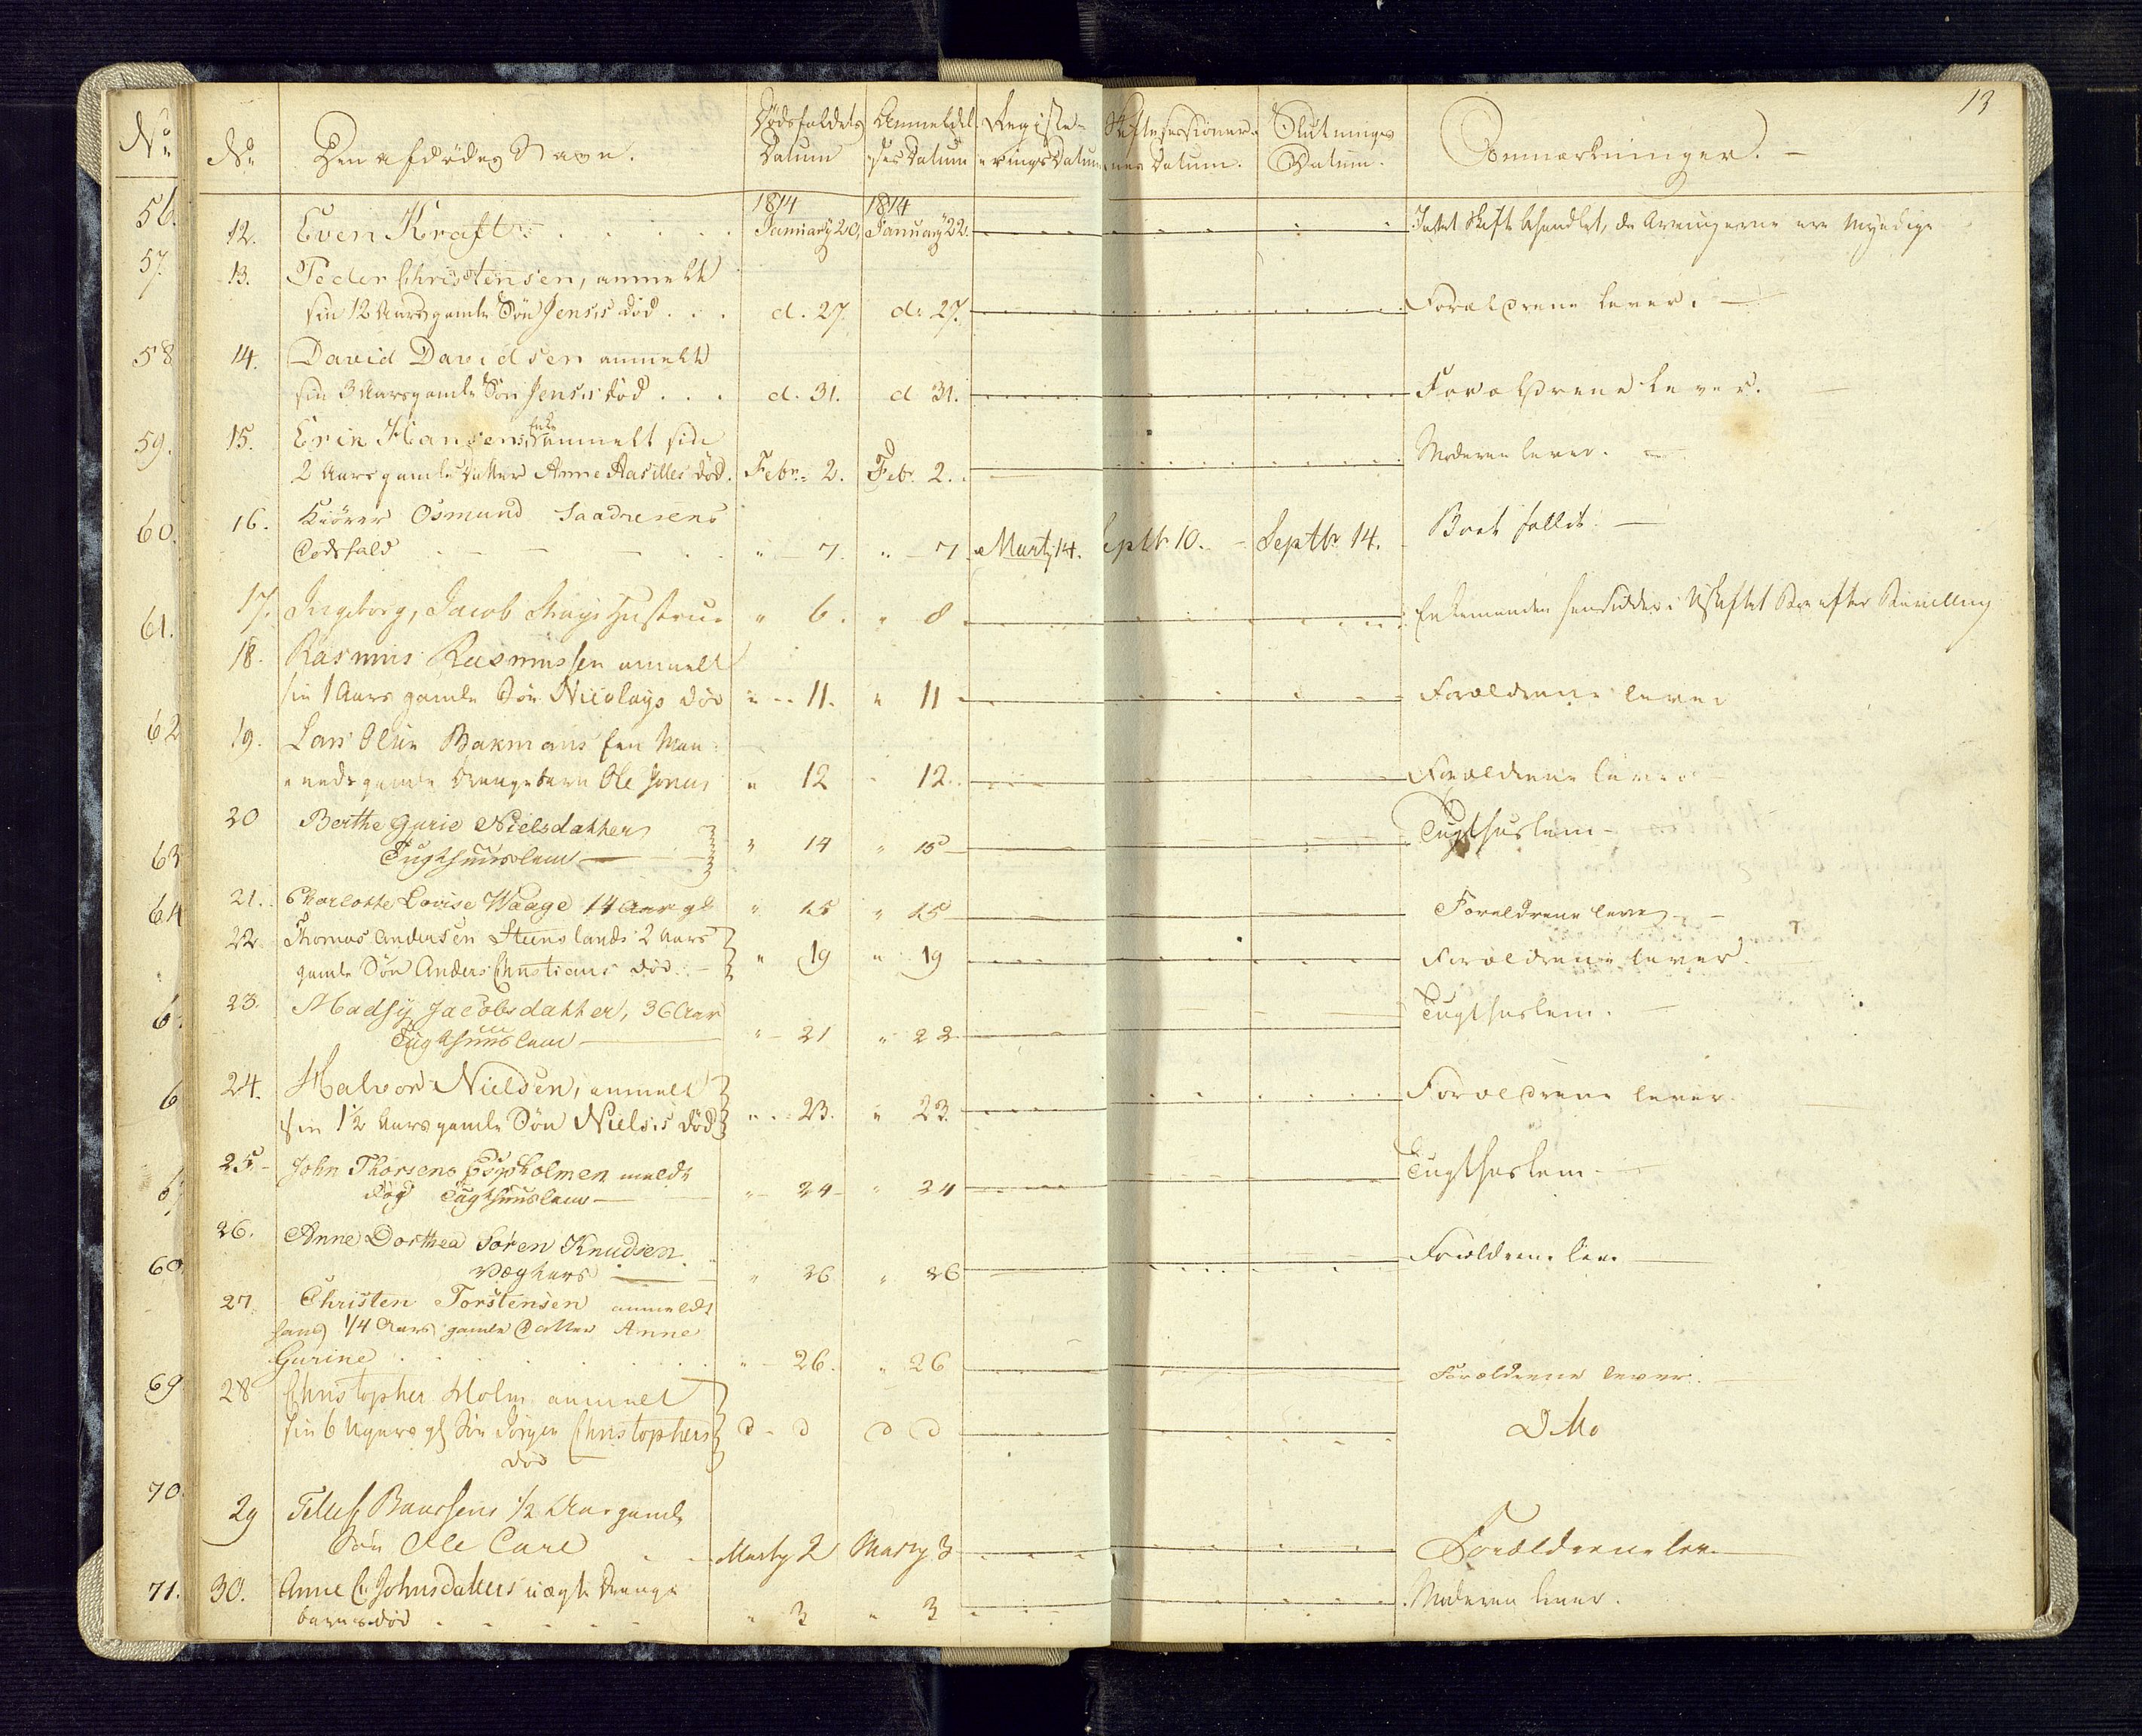 13
No
No
Den afdødes Navn.
Dødsfaldets Datum
Anmeldelsens Datum
Registeringsdatum
Skiftesessionernes Datum.
Slutnings Datum.
Anmærkninger.
1814 1814
56.
12. Even Kraft January 20, January 22. Intet Skifte behandlet, da Arvingerne ere Myndige
57.
13. Peder Christensen, anmelt
sin 12 Aars gamle Søn Jens's død d. 27. d. 27. Forældrene lever.
58
14. David Davidsen anmelte
sin 3 Aars gamle Søn Jens's død d. 31. d 31. Forældrene lever.
59.
15. Erik Hansens Enke anmelt sin
2 Aars gamle Datter Anne Aasilles død. Febr. 2. Febr. 2. Moderen lever.
60.
16. Kiører Osmund Saadresens
Dødsfald " 7. " 7. Marty 14. Septbr 10. Septbr 14. Boet fallit.
61.
17. Ingeborg, Jacob Hustrue " 6. " 8. Enkemanden hensidder i Uskiftet Boe efter Bevilling
18. Rasmus Rasmussen anmelt
sin 1 Aars gamle Søn Nicolays død " 11. " 11 Forældrene lever
62
19. Lars Olsen Bakmans fem Maa-
neds gamle Drengebarn Ole Jonas " 12 " 12. Forældrene lever
20 Berthe Gurie Nielsdatter
63
Tugthuuslem " 14 " 15 Tugthuslem
64
21. Charlotte Lovise Waage 14 Aar gl " 15 " 15 Forældrene lever
22. Thomas Andersen Steenslands 2 Aars
gamle Søn Anders Christians død. " 19 " 19 Forældrene lever.
23. Madsy Jacobsdatter, 36 Aar
6
Tugthuuslem " 21 " 22 Tugthuslem.
24. Halvor Nielsen, anmelt
6
sin 1½ Aars gamle Søn Niels's død " 23. " 23. Forældrene lever.
25. John Thorsens Espholmen meldt
6
død Tugthuuslem " 24 " 24 Tugthuslem
26. Anne Dorthea Søren Knudsen
60
Vægters " 26 " 26 Forældrene leve
27. Christen Torstensen anmeldt
hans 1/4 Aars gamle Datter Anne
Gurine " 26. " 26 Forældrene lever.
69
28 Christopher Holm anmelt
sin 6 Ugers gl Søn Jørgen Christophers d d d d Dito
død
70.
29 Tellef Baarsens 1/2 Aar gamle
Søn Ole Care Marty 2 Marty 3 Forældrene lev.
71.
30. Anne C. Johnsdatters uægte Drenge
barns død " 3 " 3 Moderen lever.